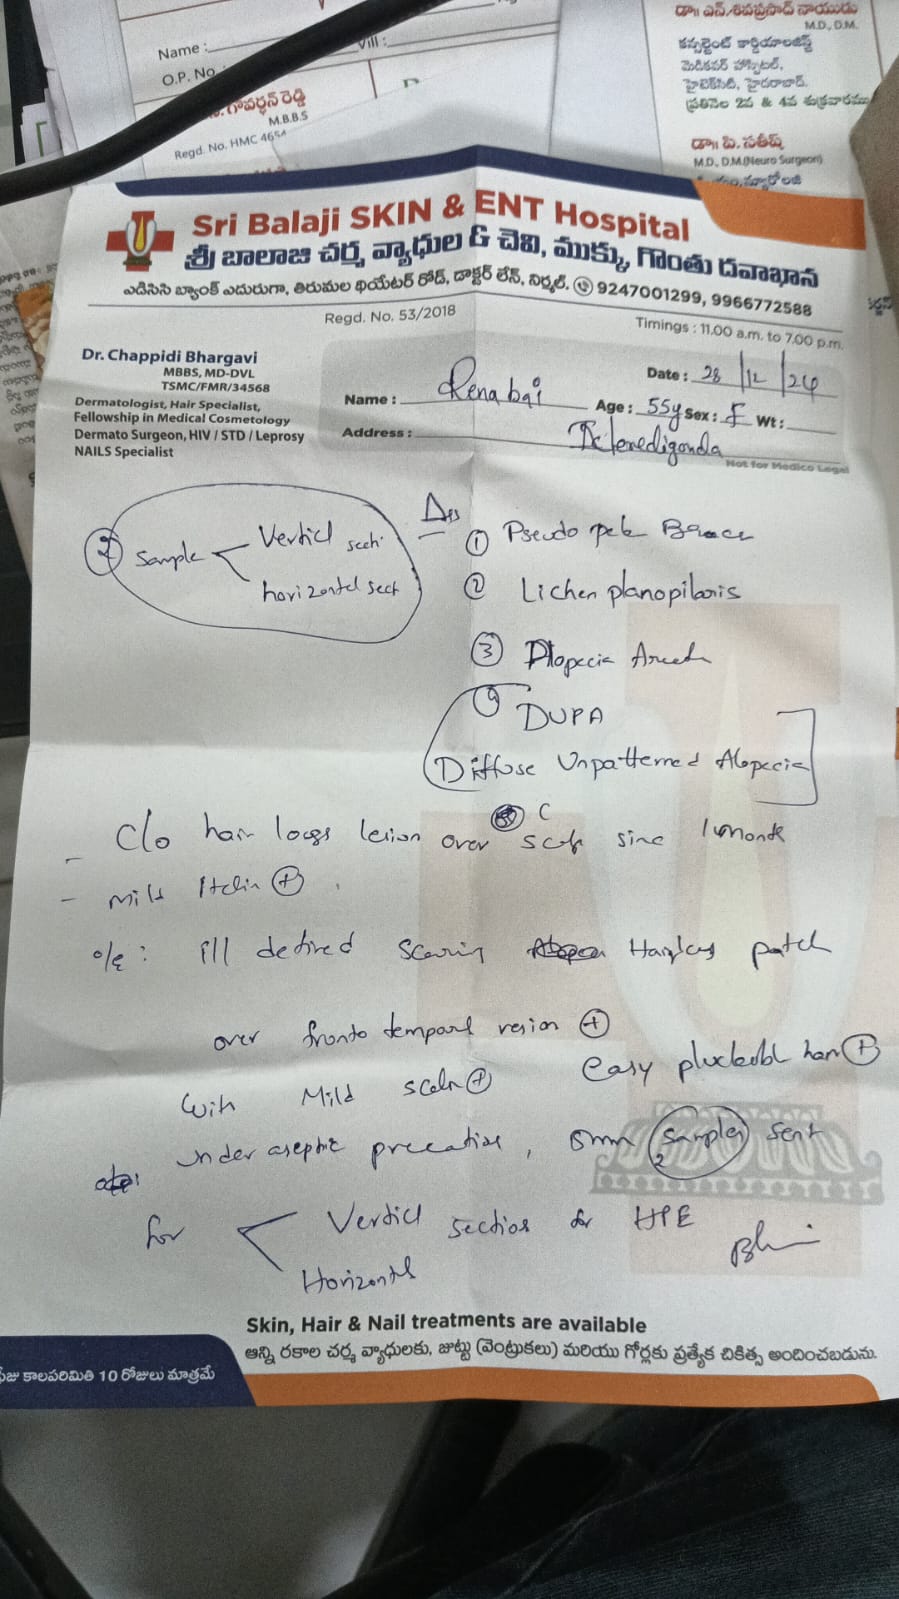 Name :
Vill :
O.P. No :
గోవర్ధన్ రెడ్డి
M.B.B.S
Regd. No. HMC 4654
డా॥ ఎన్.శివప్రసాద్ నాయుడు
M.D., D.M.
కన్సల్టెంట్ కార్డియాలజిస్ట్
మెడికవర్ హాస్పిటల్,
హైటెక్‌సిటీ, హైదరాబాద్.
ప్రతినెల 2వ & 4వ శుక్రవారము
డా॥ పి. సతీష్
M.D., D.M.(Neuro Surgeon)
Sri Balaji SKIN & ENT Hospital
శ్రీ బాలాజి చర్మ వ్యాధుల & చెవి, ముక్కు, గొంతు దవాఖాన
ఎడిసిసి బ్యాంక్ ఎదురుగా, తిరుమల థియేటర్ రోడ్, డాక్టర్ లేన్, నిర్మల్. 9247001299, 9966772588
Regd. No. 53/2018
Timings : 11.00 a.m. to 7.00 p.m.
Dr. Chappidi Bhargavi
MBBS, MD-DVL
TSMC/FMR/34568
Dermatologist, Hair Specialist,
Fellowship in Medical Cosmetology
Dermato Surgeon, HIV / STD / Leprosy
NAILS Specialist
Date : 28/12/24
Name : Renabai Age : 55y Sex : F Wt :
Address :
Not for Medico Legal
2 Sample Verticl sect.
horizontal sect
① Pseudo pele Brace
② Lichen planopilaris
③ Alopecia Areeta
④ DUPA
Diffuse Unpatterned Alopecia
- C/o hair loss lesion over scalp sinc 1 month
- Mild Itchin +
o/e : ill defined scarrin Hairless patch
over fronto temporal resion +
with Mild scaln + easy pluckabl hair +
under aseptic precations, 5mm 2 samples sent
for Verticl sections for HPE
Horizontal
Skin, Hair & Nail treatments are available
అన్ని రకాల చర్మ వ్యాధులకు, జుట్టు (వెంట్రుకలు) మరియు గోర్లకు ప్రత్యేక చికిత్స అందించబడును.
కాలపరిమితి 10 రోజులు మాత్రమే